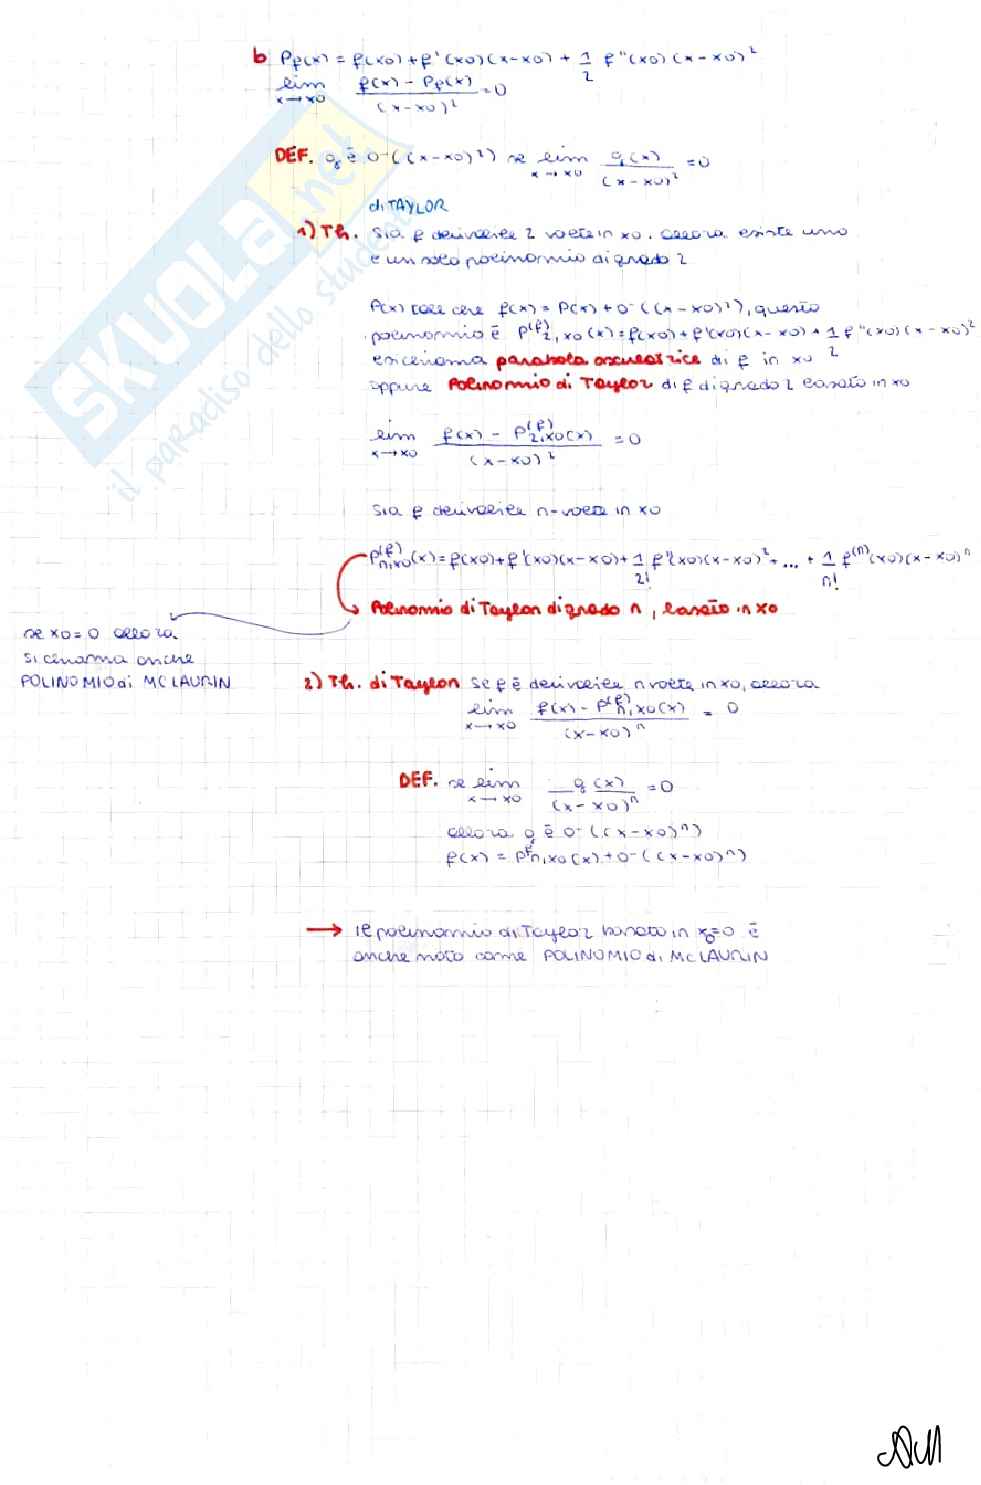 b Pf(x) = f(x0) + f'(x0)(x-x0) + 1/2 f''(x0)(x-x0)²
lim x→x0 f(x) - Pf(x) / (x-x0)² = 0
DEF. g è o((x-x0)²) se lim x→x0 g(x) / (x-x0)² = 0
di TAYLOR
1) Th. Sia f derivabile 2 volte in x0. allora esiste uno
e un solo polinomio di grado 2
P(x) tale che f(x) = P(x) + o((x-x0)²), questo
polinomio è P^(f)2,x0(x) = f(x0) + f'(x0)(x-x0) + 1/2 f''(x0)(x-x0)²
e si chiama parabola osculatrice di f in x0
oppure Polinomio di Taylor di f di grado 2 basato in x0
lim x→x0 f(x) - P^(f)2,x0(x) / (x-x0)² = 0
Sia f derivabile n-volte in x0
P^(f)n,x0(x) = f(x0) + f'(x0)(x-x0) + 1/2! f''(x0)(x-x0)² + ... + 1/n! f^(n)(x0)(x-x0)^n
Polinomio di Taylor di grado n, basato in x0
se x0=0 allora
si chiama anche
POLINOMIO di MCLAURIN
2) Th. di Taylor Se f è derivabile n volte in x0, allora
lim x→x0 f(x) - P^(f)n,x0(x) / (x-x0)^n = 0
DEF. se lim x→x0 g(x) / (x-x0)^n = 0
allora g è o((x-x0)^n)
f(x) = P^f n,x0(x) + o((x-x0)^n)
→ il polinomio di Taylor basato in x0=0 è
anche noto come POLINOMIO di McLAURIN
SKUOLA.net
il paradiso dello studente